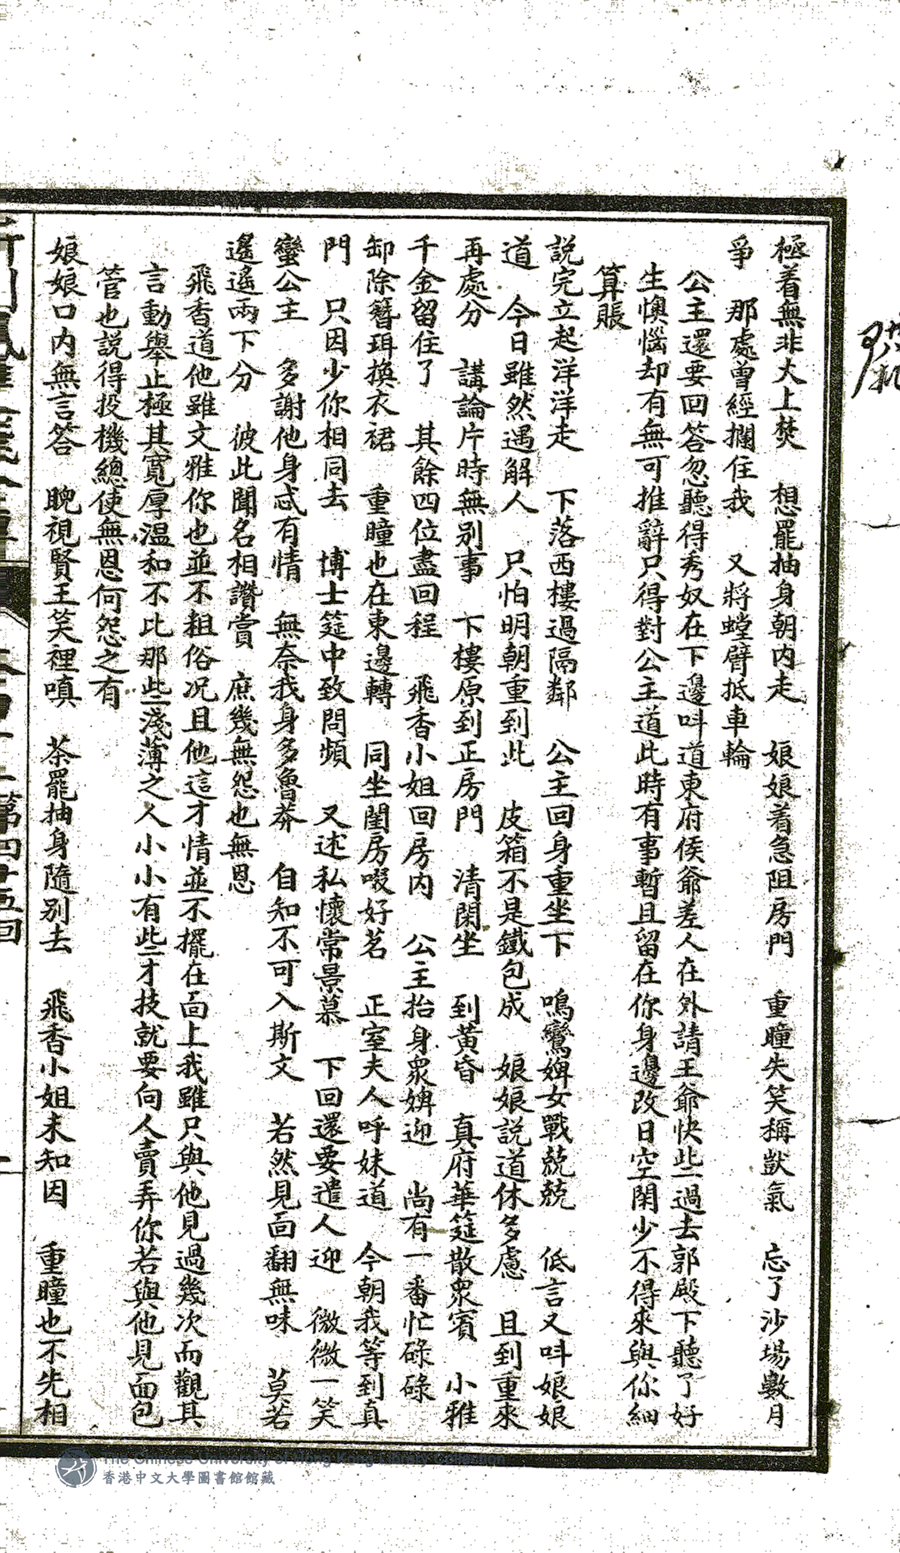 極着無非火上焚　想罷抽身朝內走　娘娘着急阻房門　重瞳失笑稱獃氣　忘了沙場數月
爭　那處曾經攔住我　又將螳臂抵車輪
公主還要回答忽聽得秀奴在下邊呌道東府侯爺差人在外請王爺快些過去郭殿下聽了好
生懊惱却有無可推辭只得對公主道此時有事暫且留在你身邊改日空閑少不得來與你細
算賬
說完立起洋洋走　下落西樓過隔鄰　公主回身重坐下　鳴鸞婢女戰兢兢　低言又呌娘娘
道　今日雖然遇解人　只怕明朝重到此　皮箱不是鐵包成　娘娘說道休多慮　且到重來
再處分　講論片時無別事　下樓原到正房門　清閑坐　到黃昏　真府華筵散眾賓　小雅
千金留住了　其餘四位盡回程　飛香小姐回房內　公主抬身眾婢迎　尚有一番忙碌碌
卸除簪珥換衣裙　重瞳也在東邊轉　同坐閨房啜好茗　正室夫人呼妹道　今朝我等到真
門　只因少你相同去　博士筵中致問頻　又述私懷常景慕　下回還要遣人迎　微微一笑
蠻公主　多謝他身忒有情　無奈我身多魯莽　自知不可入斯文　若然見面翻無味　莫若
遙遙兩下分　彼此聞名相讚賞　庶幾無怨也無恩
飛香道他雖文雅你也並不粗俗况且他這才情並不擺在面上我雖只與他見過幾次而觀其
言動舉止極其寬厚温和不比那些淺薄之人小小有些才技就要向人賣弄你若與他見面包
管也說得投機總使無恩何怨之有
娘娘口內無言答　睨視賢王笑裡嗔　茶罷抽身隨別去　飛香小姐未知因　重瞳也不先相
第四十五回
The Chinese University of Hong Kong Library Collection
香港中文大學圖書館館藏